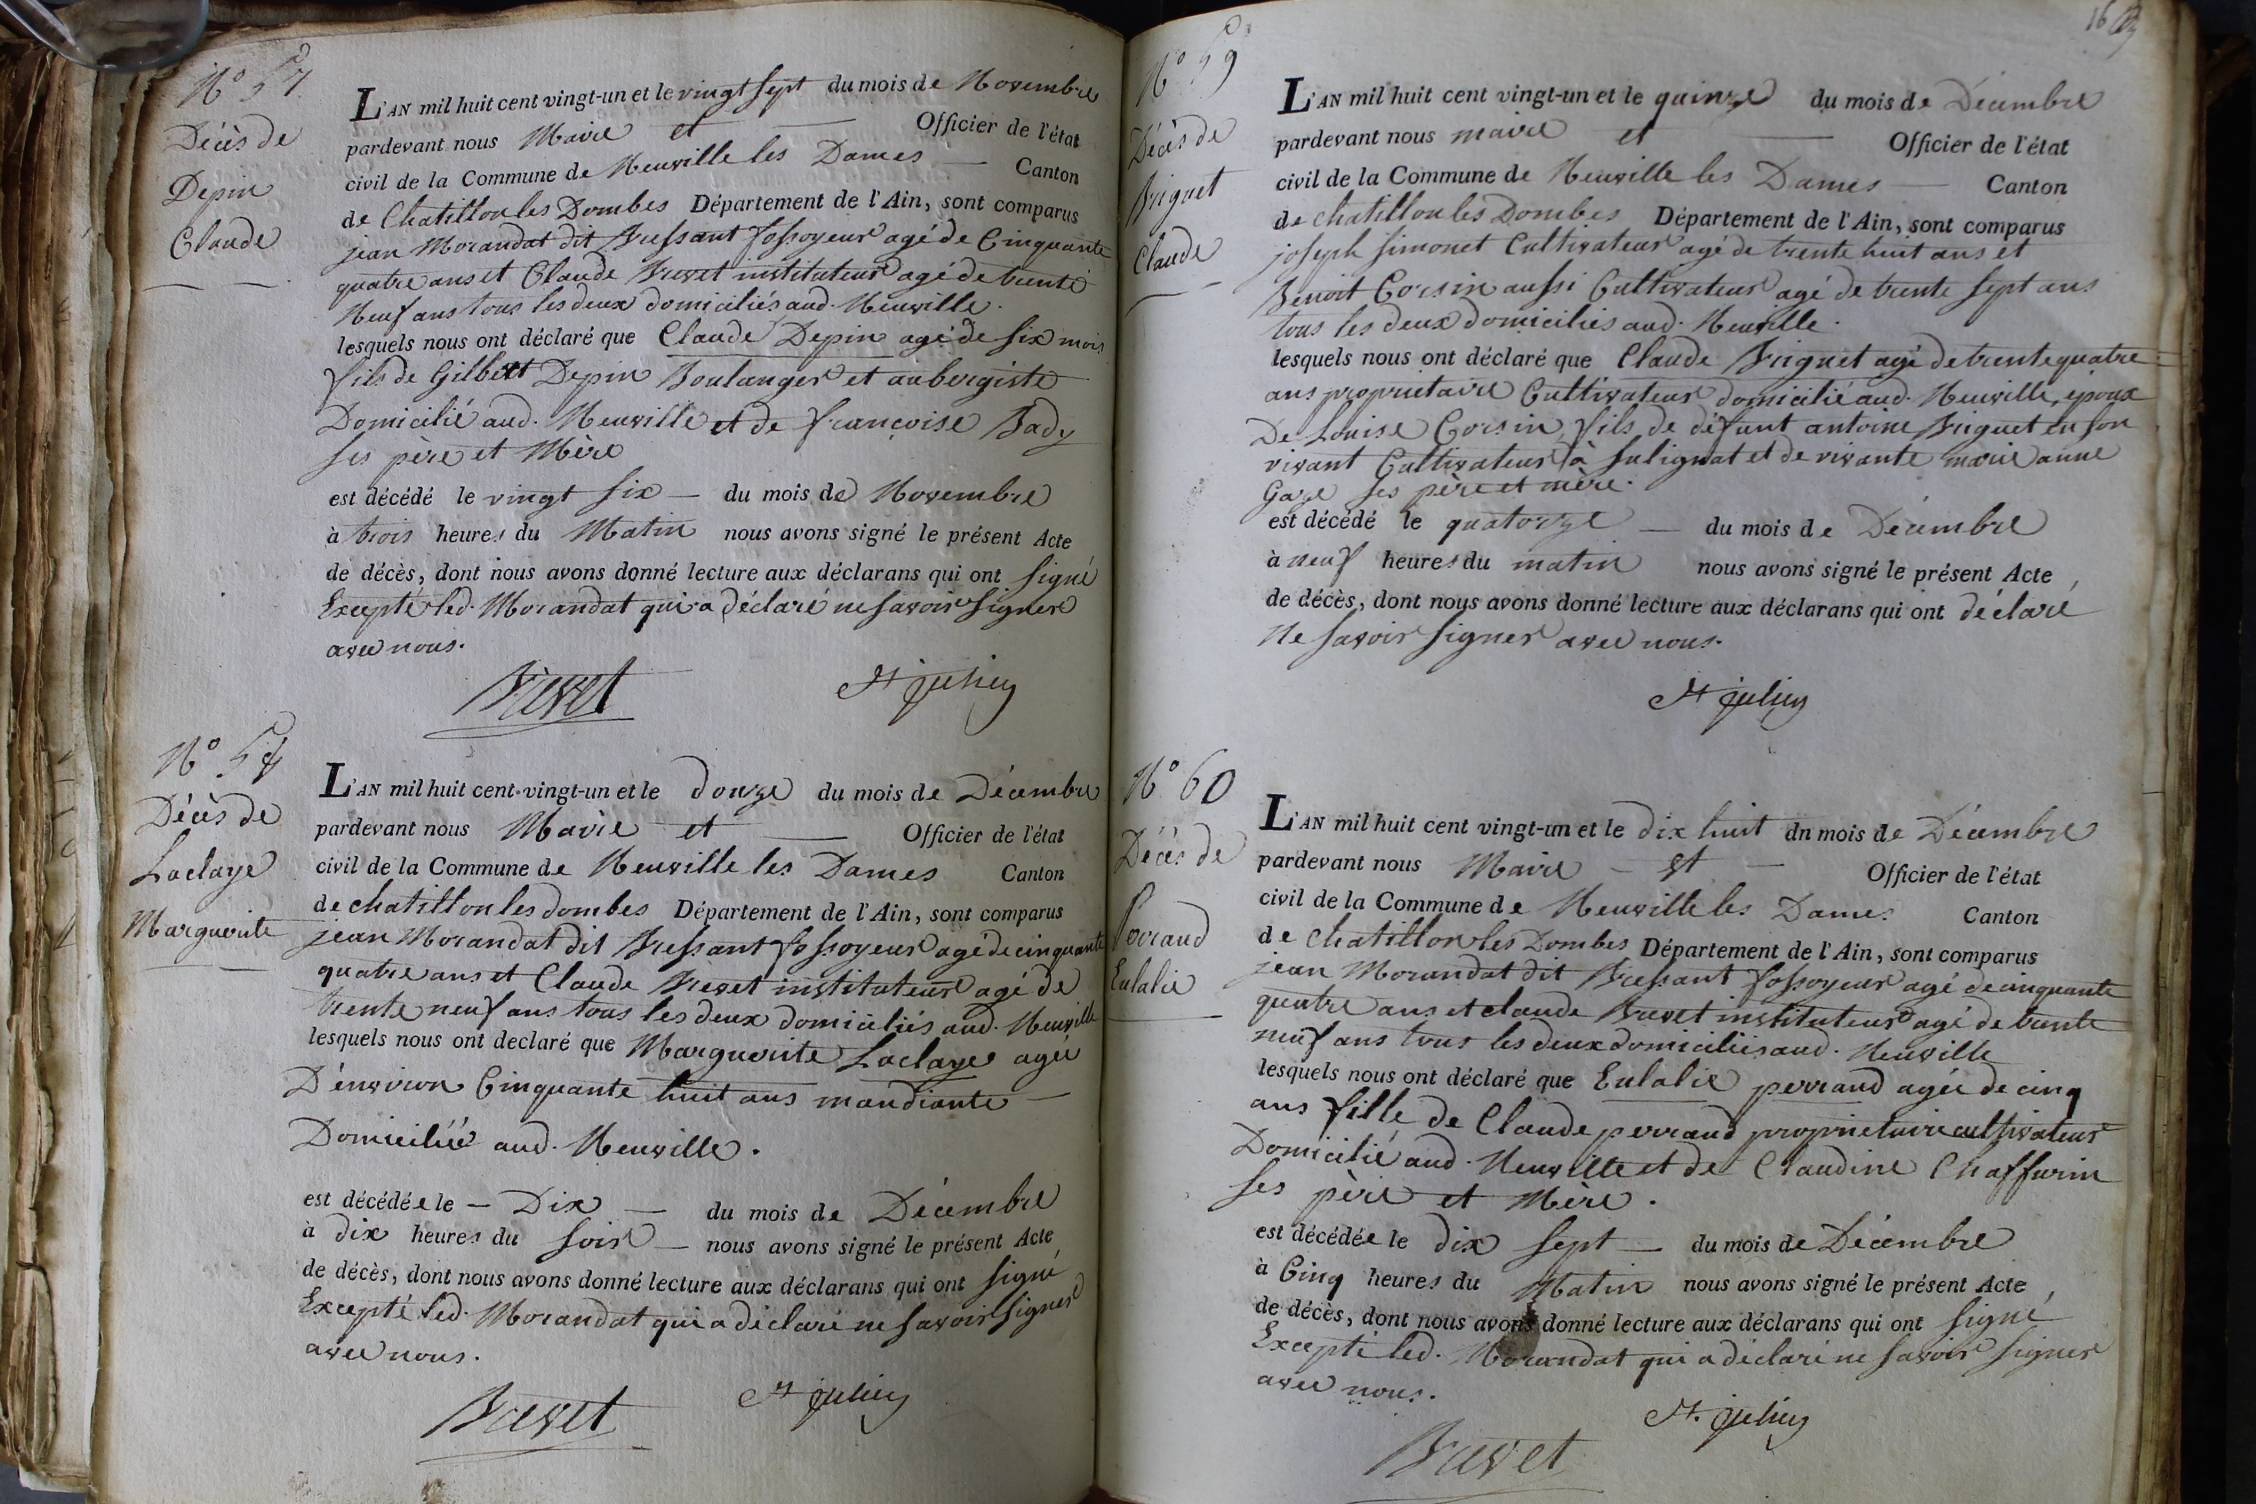 N° 57
Décès de
Depin
Claude
L'AN mil huit cent vingt-un et le vingt sept du mois de Novembre
pardevant nous Maire et Officier de l'état
civil de la Commune de Neuville les Dames Canton
de Chatillon les Dombes Département de l'Ain, sont comparus
jean Morandat dit Bressant fossoyeur agé de Cinquante
quatre ans et Claude Brevet instituteur agé de trente
Neuf ans tous les deux domiciliés aud. Neuville.
lesquels nous ont déclaré que Claude Depin agé de six mois
fils de Gilbert Depin Boulanger et aubergiste
Domicilié aud. Neuville et de françoise Bady
ses père et Mère
est décédé le vingt six du mois de Novembre
à trois heures du Matin nous avons signé le présent Acte
de décès, dont nous avons donné lecture aux déclarans qui ont signé
Excepté led. Morandat qui a déclaré ne savoir signer
avec nous.
Brevet St julien
N° 58
Décès de
Laclaye
Marguerite
L'AN mil huit cent vingt-un et le douze du mois de Décembre
pardevant nous Maire et Officier de l'état
civil de la Commune de Neuville les Dames Canton
de chatillon les dombes Département de l'Ain, sont comparus
jean Morandat dit Bressant fossoyeur agé de cinquante
quatre ans et Claude Brevet instituteur agé de
trente neuf ans tous les deux domiciliés aud. Neuville
lesquels nous ont declaré que Marguerite Laclaye agée
D'environ Cinquante huit ans mandiante
Domiciliée aud. Neuville.
est décédée le Dix du mois de Décembre
à dix heures du soir nous avons signé le présent Acte
de décès, dont nous avons donné lecture aux déclarans qui ont signé
Excepté led. Morandat qui a déclaré ne savoir signer
avec nous.
Brevet St julien
16
N° 59
Décès de
Briguet
Claude
L'AN mil huit cent vingt-un et le quinze du mois de Décembre
pardevant nous maire et Officier de l'état
civil de la Commune de Neuville les Dames Canton
de chatillon les Dombes Département de l'Ain, sont comparus
joseph simonet Cultivateur agé de trente huit ans et
Benoit Corsin aussi Cultivateur agé de trente sept ans
tous les deux domiciliés aud. Neuville.
lesquels nous ont déclaré que Claude Briguet agé de trente quatre
ans propriétaire Cultivateur domicilié aud. Neuville, époux
De Louise Corsin, fils de défunt antoine Briguet en son
vivant Cultivateur à sulignat et de vivante marie anne
Gaze ses père et mère.
est décédé le quatorze du mois de Décembre
à neuf heures du matin nous avons signé le présent Acte
de décès, dont nous avons donné lecture aux déclarans qui ont déclaré
Ne savoir signer avec nous.
St julien
N° 60
Décès de
Perraud
Eulalie
L'AN mil huit cent vingt-un et le dix huit dn mois de Décembre
pardevant nous Maire et Officier de l'état
civil de la Commune de Neuville les Dames Canton
de chatillon les Dombes Département de l'Ain, sont comparus
jean Morandat dit Bressant fossoyeur agé de cinquante
quatre ans et claude Brevet instituteur agé de trente
neuf ans tous les deux domiciliés aud. Neuville
lesquels nous ont déclaré que Eulalie perraud agée de cinq
ans fille de Claude perraud propriétaire cultivateur
Domicilié aud. Neuville et de Claudine Chaffurin
ses père et Mère.
est décédée le dix sept du mois de Décembre
à Cinq heures du Matin nous avons signé le présent Acte
de décès, dont nous avons donné lecture aux déclarans qui ont signé
Excepté led. Morandat qui a déclaré ne savoir signer
avec nous.
St. julien
Brevet